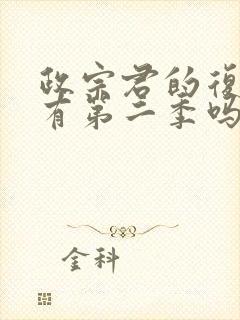 政宗君的復
有第二季吗
金科